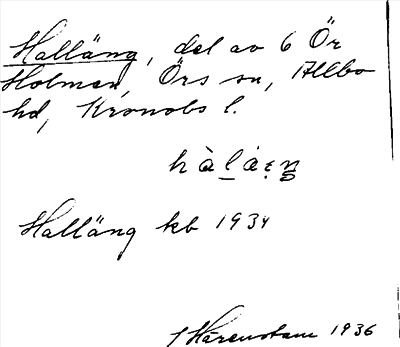 Halläng, del av 6 Ör
Holmen, Örs sn, Allbo
hd, Kronobs l.
Halläng kb 1934
1936